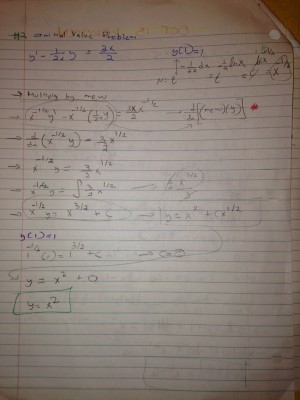 #2 Initial Value Problem
y' - 1/2x y = 3x/2 y(1)=1
→ Multiply by mew
x^-1/2 y' - x^-1/2 (1/2x y) = 3x/2 x^-1/2 → d/dx [(mew)(y)]
→ d/dx (x^-1/2 y) = 3/2 x^1/2
→ x^-1/2 y = 3/2 x^1/2
→ x^-1/2 y = ∫ 3/2 x^1/2
→ x^-1/2 y = x^3/2 + C → y = x^2 + Cx^1/2
y(1)=1
1^-1/2 (1) = 1^3/2 + C → C=0
So y = x^2 + 0
y = x^2